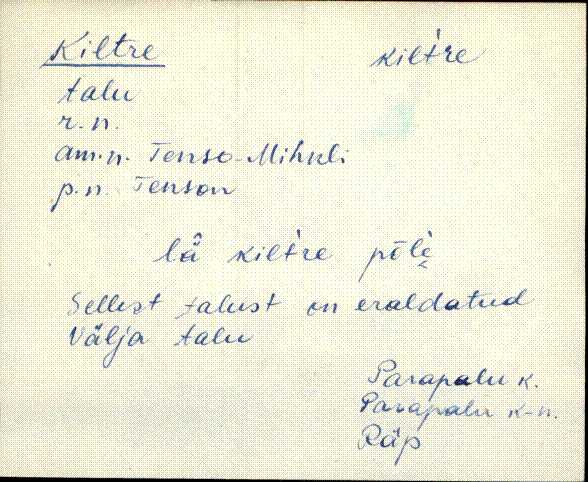 Kiltre kil't're
talu
r.n.
am.n. Tenso-Mihkli
p.n. Tenson
lä̆ kil't're põlè
Sellest talust on eraldatud
Välja talu
Parapalu k.
Parapalu k-n.
Räp